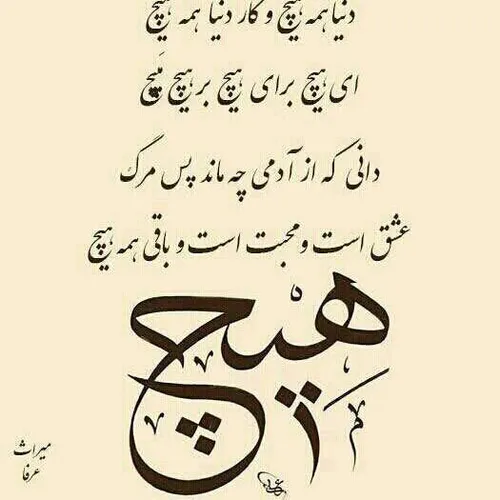 دنیا همه هیچ و کار دنیا همه هیچ
ای هیچ برای هیچ بر هیچ مَپیچ
دانی که از آدمی چه ماند پس مرگ
عشق است و محبت است و باقی همه هیچ
هیچ
میراث
عرفا